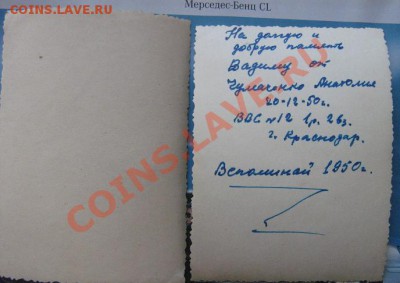 COINS.LAVE.RU
Мерседес-Бенц CL
На долгую и
добрую память
Вадиму от
Чумаченко Анатолия
20-12-50г.
ВВС №12 1р. 2вз.
г. Краснодар.
Вспоминай 1950г.
COINS.LAVE.RU
COINS.LAVE.RU